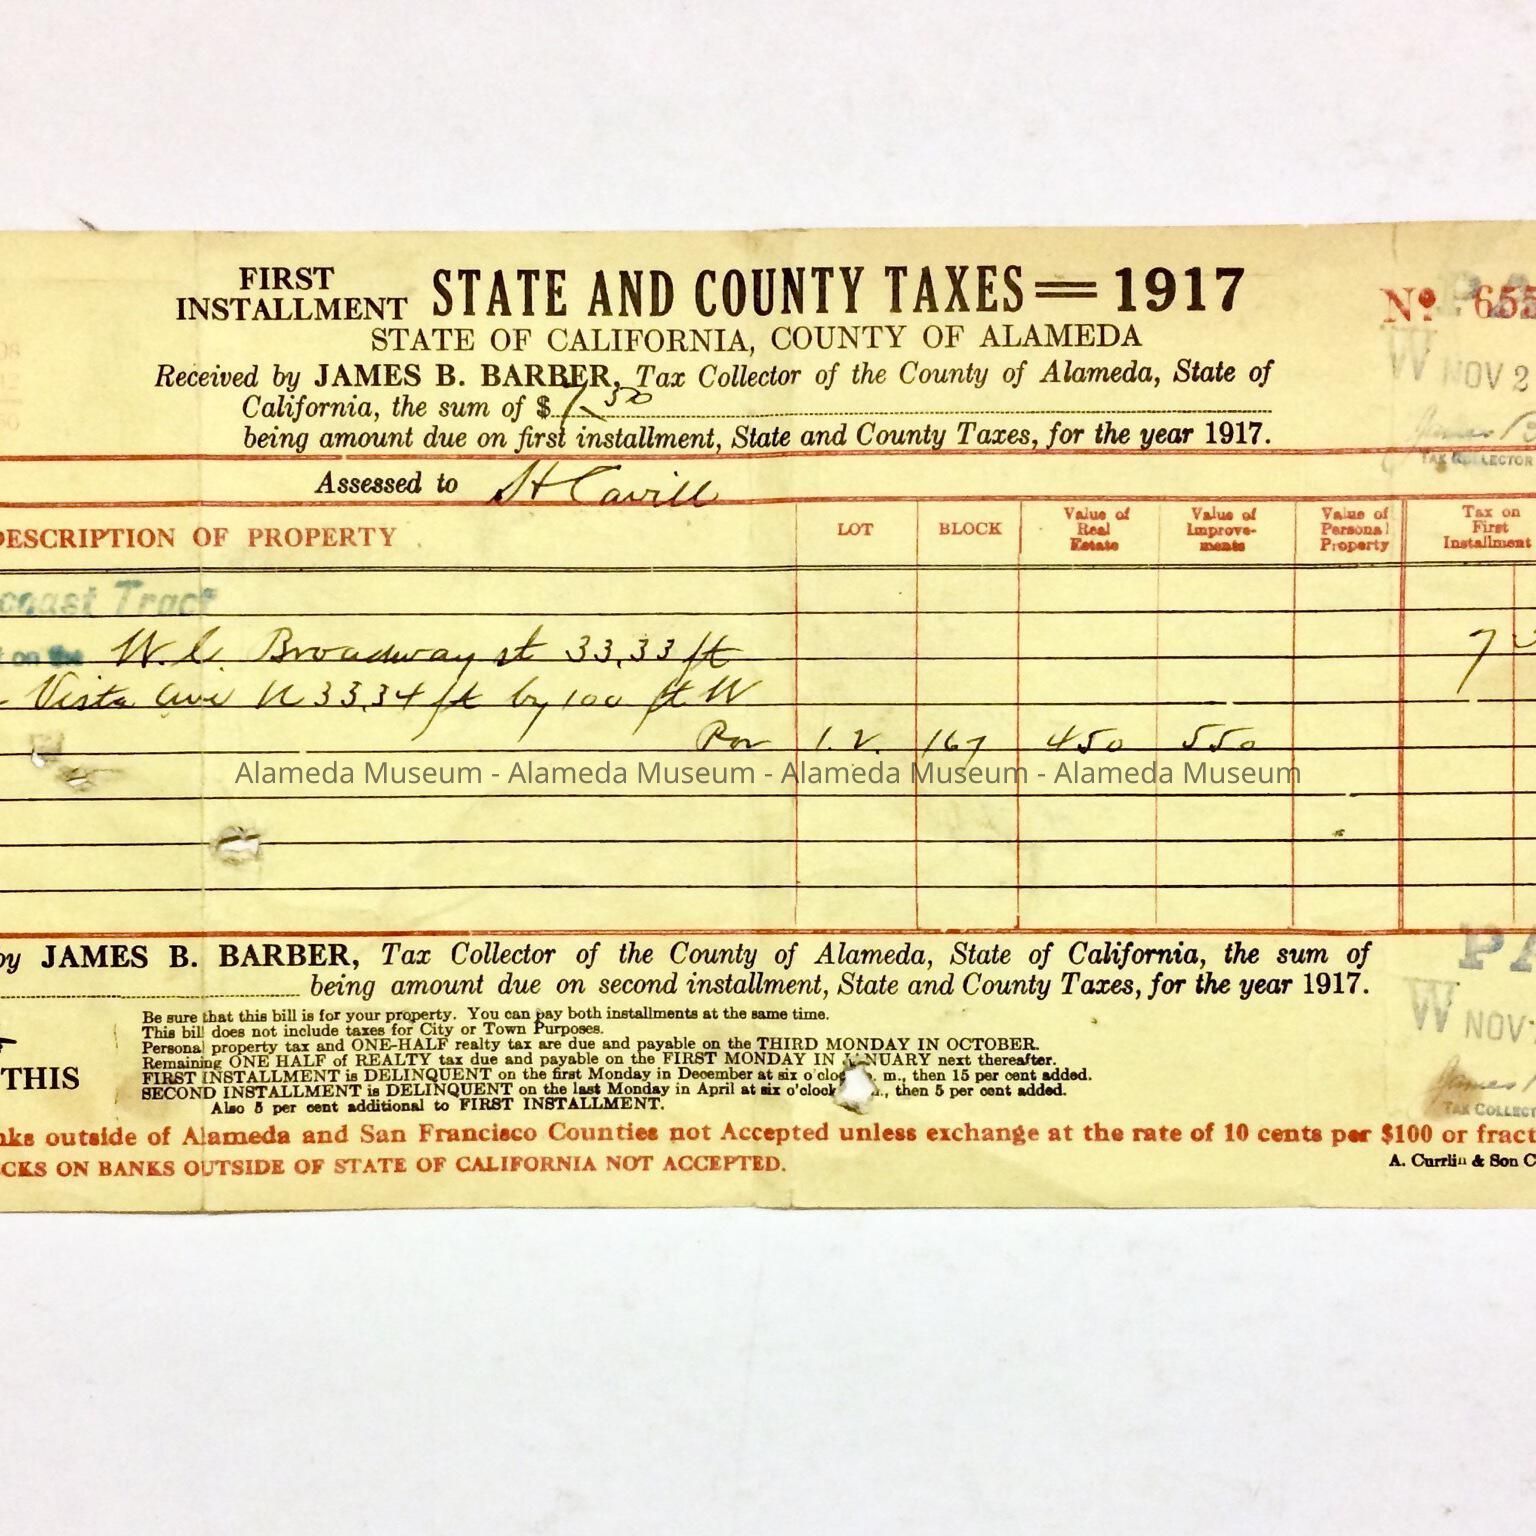 FIRST INSTALLMENT STATE AND COUNTY TAXES = 1917
Nº 655
STATE OF CALIFORNIA, COUNTY OF ALAMEDA
NOV 2
Received by JAMES B. BARBER, Tax Collector of the County of Alameda, State of
California, the sum of $ 7 50
being amount due on first installment, State and County Taxes, for the year 1917.
TAX COLLECTOR
Assessed to H Cavill
DESCRIPTION OF PROPERTY LOT BLOCK Value of Real Estate Value of Improve-ments Value of Personal Property Tax on First Installment
coast Tract
on the W. l. Broadway st 33.33 ft 7
Vista Ave N 33.34 ft by 100 ft W
Por 1.2. 167 450 550
Alameda Museum - Alameda Museum - Alameda Museum - Alameda Museum
by JAMES B. BARBER, Tax Collector of the County of Alameda, State of California, the sum of
PA
being amount due on second installment, State and County Taxes, for the year 1917.
W NOV
Be sure that this bill is for your property. You can pay both installments at the same time.
This bill does not include taxes for City or Town Purposes.
Personal property tax and ONE-HALF realty tax are due and payable on the THIRD MONDAY IN OCTOBER.
Remaining ONE HALF of REALTY tax due and payable on the FIRST MONDAY IN JANUARY next thereafter.
THIS
FIRST INSTALLMENT is DELINQUENT on the first Monday in December at six o'cloc m., then 15 per cent added.
SECOND INSTALLMENT is DELINQUENT on the last Monday in April at six o'clock ., then 5 per cent added.
Also 5 per cent additional to FIRST INSTALLMENT.
James
TAX COLLECT
nks outside of Alameda and San Francisco Counties not Accepted unless exchange at the rate of 10 cents per $100 or fract
CKS ON BANKS OUTSIDE OF STATE OF CALIFORNIA NOT ACCEPTED.
A. Currlin & Son C